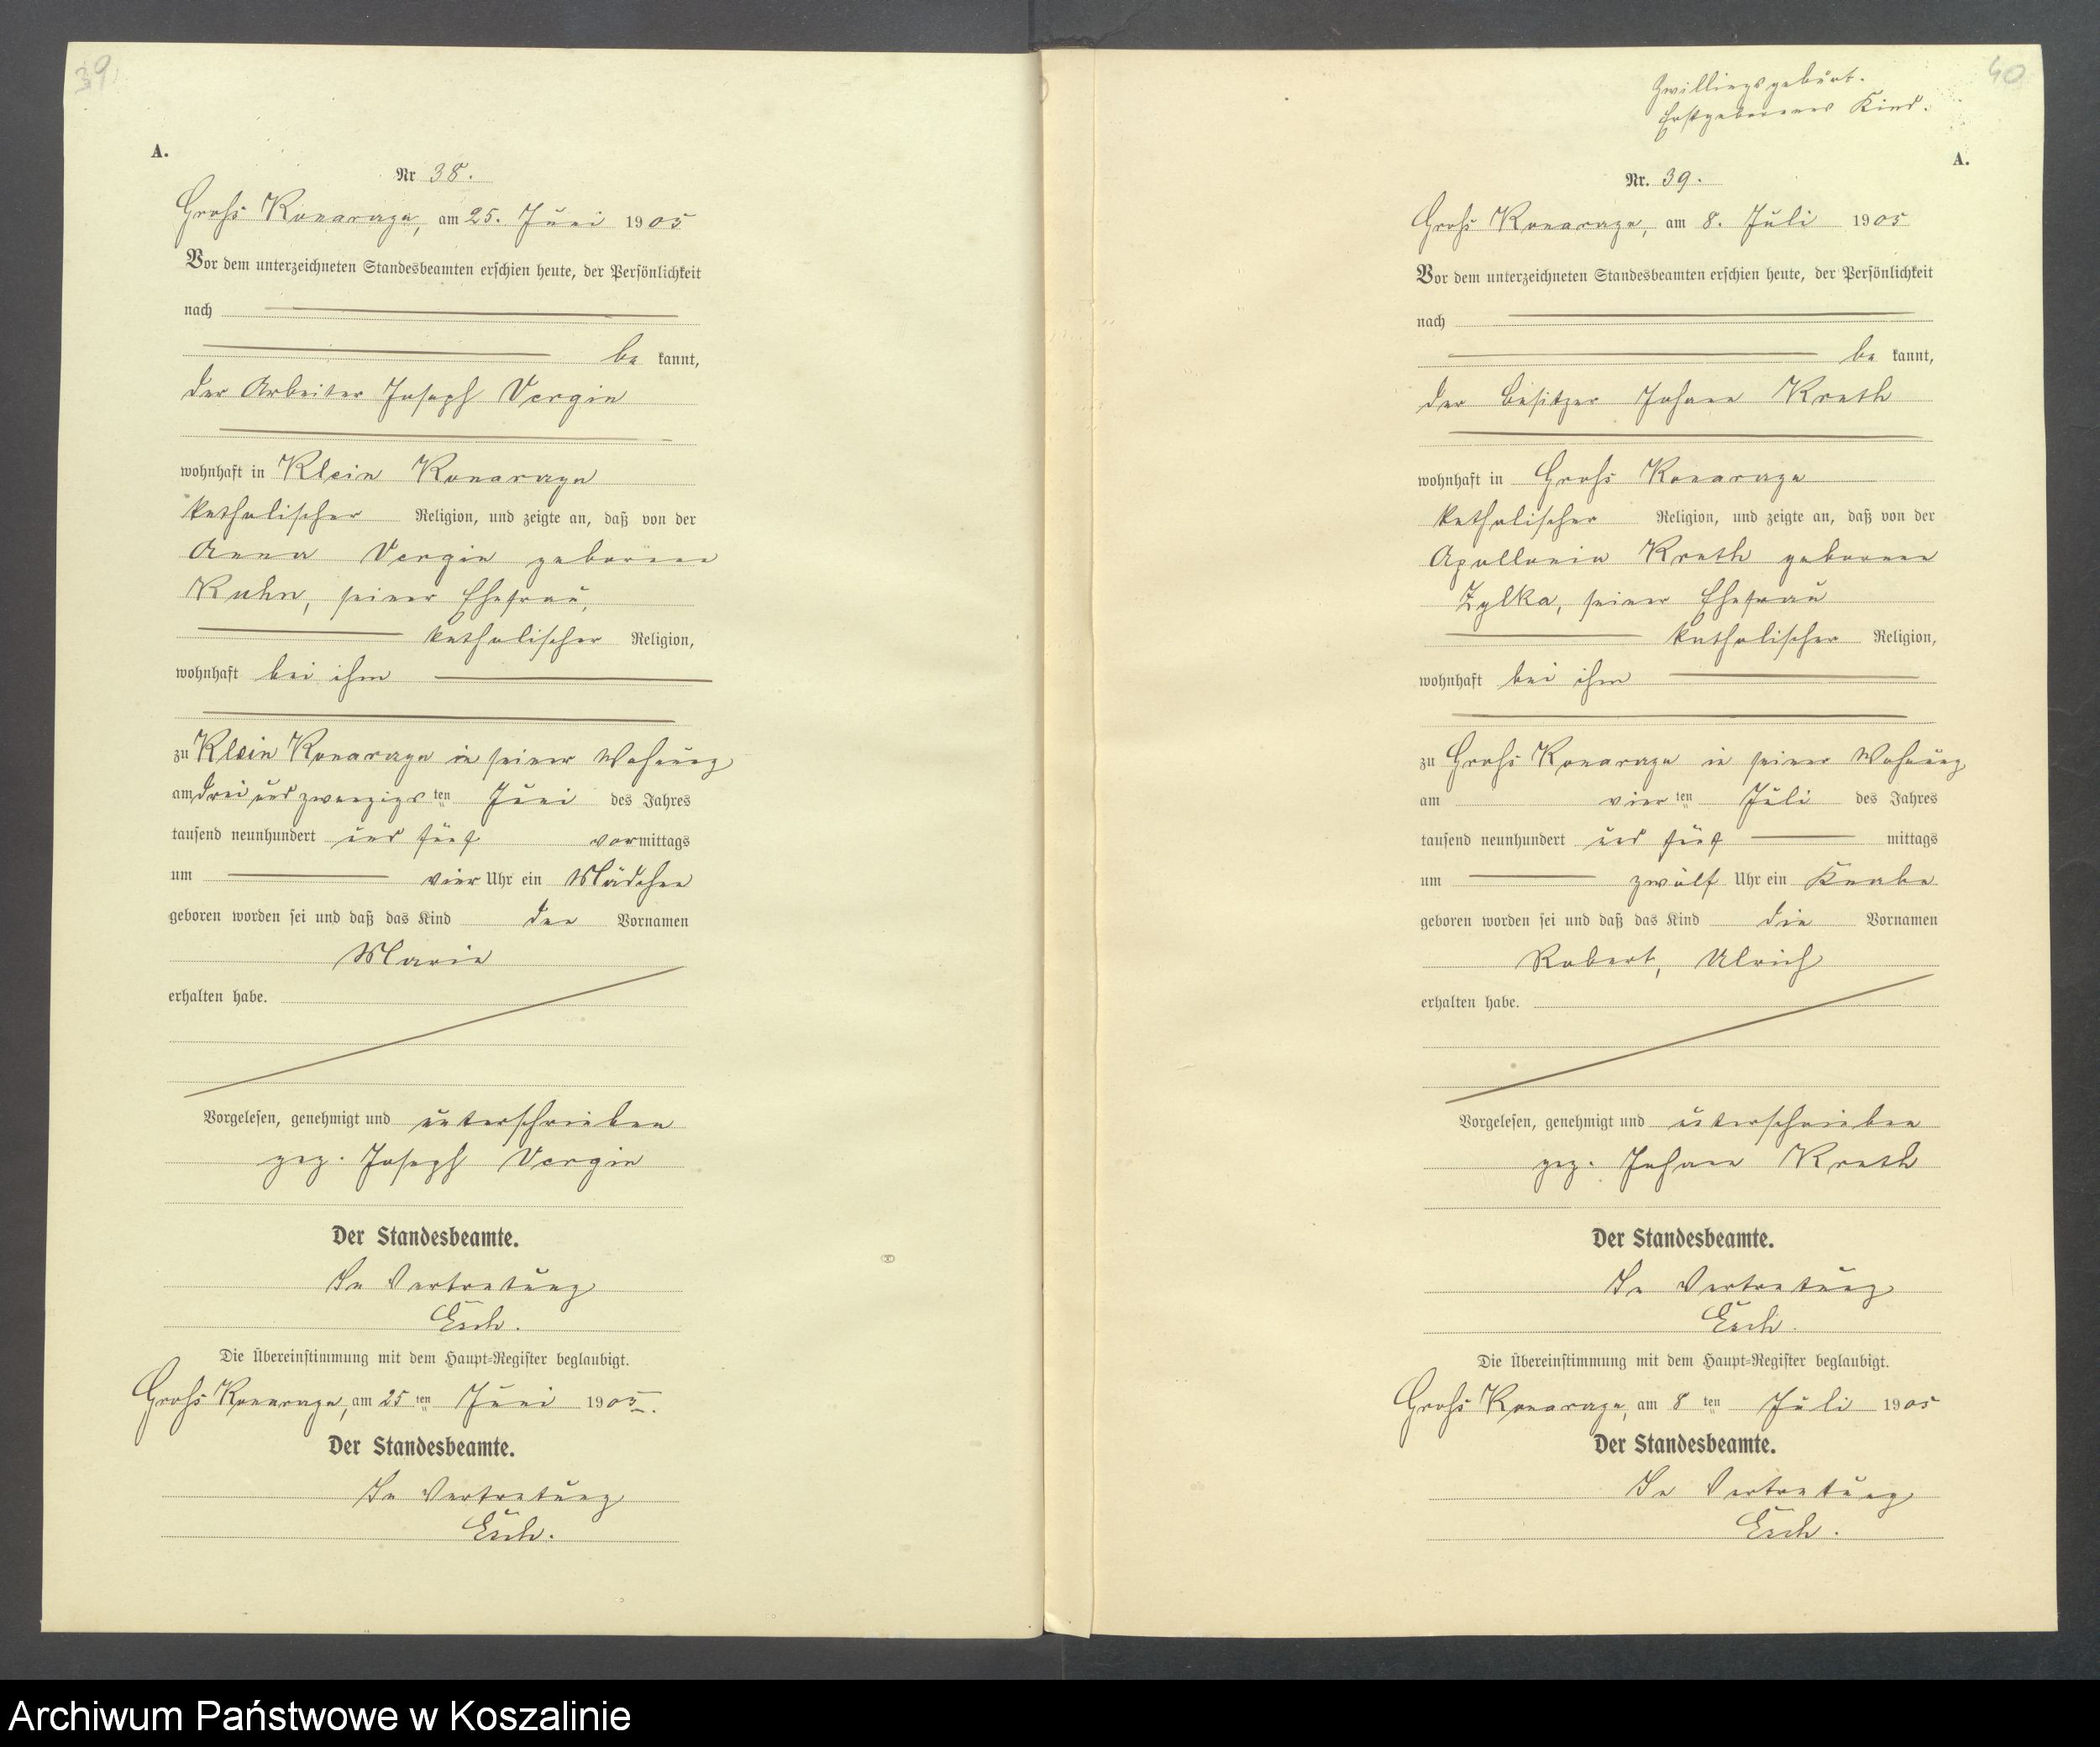 39.
A.
Nr 38.
Groß Konarzyn, am 25. Juni 1905
Vor dem unterzeichneten Standesbeamten erschien heute, der Persönlichkeit
nach
be kannt,
der Arbeiter Joseph Vergin
wohnhaft in Klein Konarzyn
katholischer Religion, und zeigte an, daß von der
Anna Vergin geborene
Kuhn, seiner Ehefrau,
katholischer Religion,
wohnhaft bei ihm
zu Klein Konarzyn in seiner Wohnung
am drei und zwanzigsten Juni des Jahres
tausend neunhundert und fünf vormittags
um vier Uhr ein Mädchen
geboren worden sei und daß das Kind den Vornamen
Marie
erhalten habe.
Vorgelesen, genehmigt und unterschrieben
gez. Joseph Vergin
Der Standesbeamte.
In Vertretung
Esch.
Die Übereinstimmung mit dem Haupt-Register beglaubigt.
Groß Konarzyn, am 25 ten Juni 1905.
Der Standesbeamte.
In Vertretung
Esch.
40
Zwillingsgeburt.
Erstgeborenes Kind.
A.
Nr. 39.
Groß Konarzyn, am 8. Juli 1905
Vor dem unterzeichneten Standesbeamten erschien heute, der Persönlichkeit
nach
be kannt,
der Besitzer Johann Kreth
wohnhaft in Groß Konarzyn
katholischer Religion, und zeigte an, daß von der
Apollonia Kreth geborene
Zylka, seiner Ehefrau
katholischer Religion,
wohnhaft bei ihm
zu Groß Konarzyn in seiner Wohnung
am vierten Juli des Jahres
tausend neunhundert und fünf mittags
um zwölf Uhr ein Knabe
geboren worden sei und daß das Kind die Vornamen
Robert, Ulrich
erhalten habe.
Vorgelesen, genehmigt und unterschrieben
gez. Johann Kreth
Der Standesbeamte.
In Vertretung
Esch.
Die Übereinstimmung mit dem Haupt-Register beglaubigt.
Groß Konarzyn, am 8 ten Juli 1905
Der Standesbeamte.
In Vertretung
Esch.
Archiwum Państwowe w Koszalinie